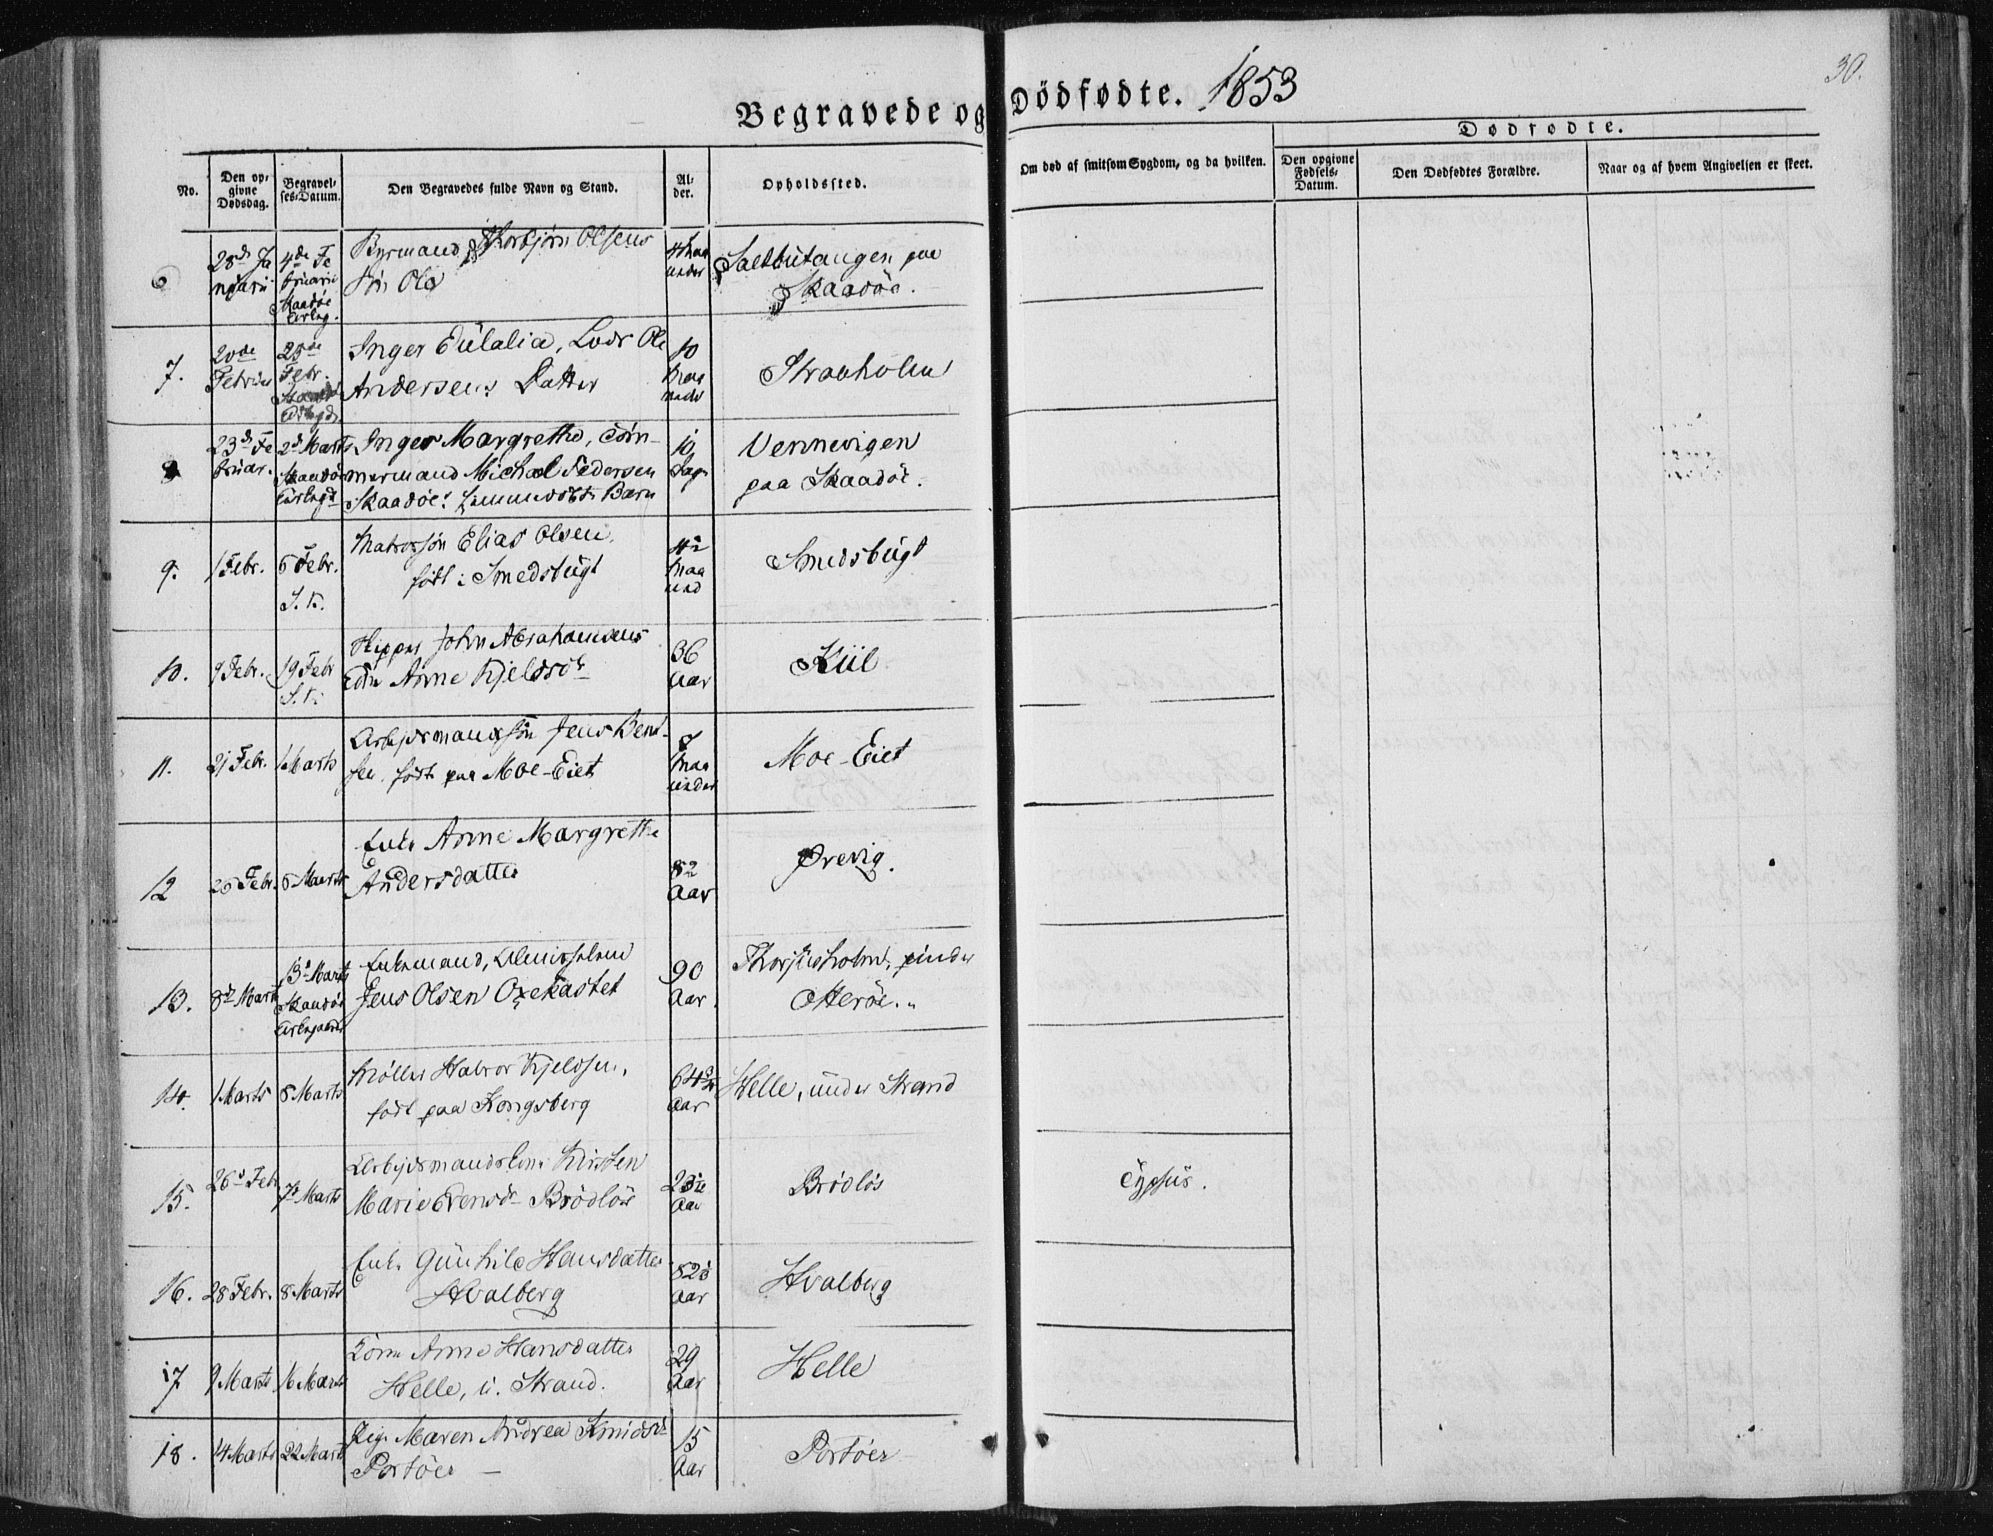 30.
Begravede og Dödfødte. 1853
Dødfødte.
No.
Den opgivne Dødsdag.
Begravelses-Datum.
Den Begravedes fulde Navn og Stand.
Alder.
Opholdssted.
Om død af smitsom Sygdom, og da hvilken.
Den opgivne Fødsels-Datum.
Den Dødfødtes Forældre.
Naar og af hvem Angivelsen er skeet.
6 28de Januarii 4de Februarii Skaadøe
Thorbjørn Olsens
Søn Ole
Saltbutangen paa
Skaadöe.
7. 20de Februar 25de Febr.
Inger Eulalia, Ole
Andersens Datter
10 Maaneder
Straaholm
23de Februar. 2d Marts Skaadöe
Inger Margrethe, Tömmermand Michael Pedersen
Skaadöe: Barn
10 Dage
Vennevigen
paa Skaadöe.
9. 1 Febr. 6 Febr. S. K.
Matrossön Elias Olsen,
født i Smedsbügt
Smedsbügt
10. 9 Febr. 19 Febr S. K.
John Abrahamsens
Anne Kjeldsdtr
36 Aar
Kiil
11. 21 Febr. 1 Marts
Arbejdsmandssön Jens Bentsen, født paa Moe-Eiet
8 Maaneder
Moe-Eiet
12 26 Febr. 6 Marts
Enke Anne Margrethe
Andersdatter
82 Aar
Ørevig.
13. 8de Marts 13de Marts Skaadöe
Enkemand,
Jens Olsen Oxekastet
90 Aar.
Otteröe.
14. 1 Marts 8 Marts
Møller Halvor Kjeldsen,
født paa Kongsberg
Aar
Helle, under Strand
15. 26de Febr 7de Marts
Kirsten
Marie Brödlös
Aar
Brödlös
Typhus.
16. 28 Febr. 8 Marts
Enke Günhild Hansdatter
Hvalberg
Aar
Hvalberg
17 9 Marts 16 Marts
Anne Hansdatter
Helle, u. Strand.
29 Aar
Helle
18. 14 Marts 22 Marts
Pige Maren Andrea Knudsdr
Portöer —
15 Aar
Portöer